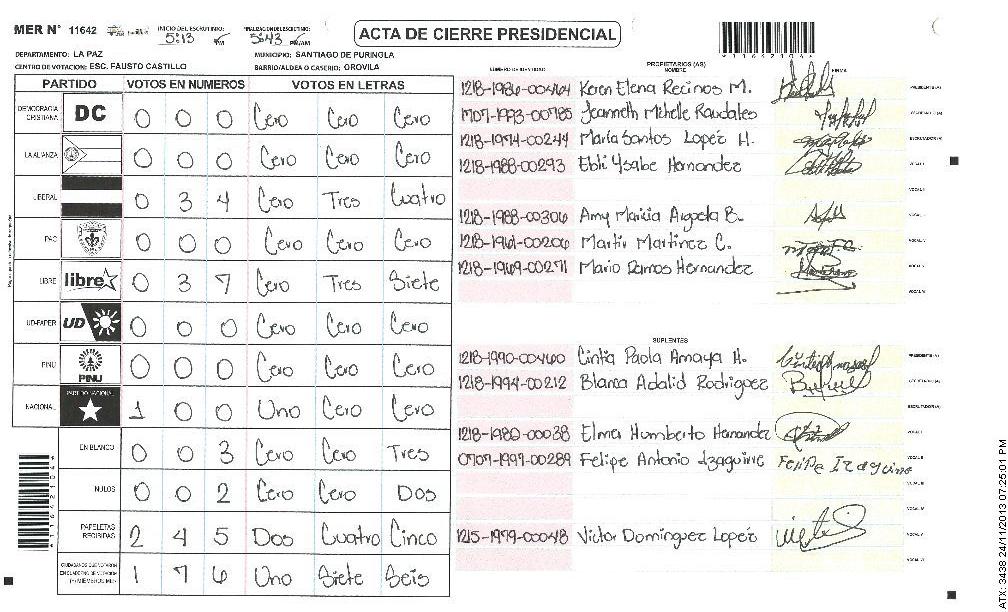 MER N° 11642 INICIO DEL ESCRUTINIO: 5:13 PM FINALIZACION ESCRUTINIO: 5:43 PM/AM ACTA DE CIERRE PRESIDENCIAL
DEPARTAMENTO: LA PAZ MUNICIPIO: SANTIAGO DE PURINGLA
CENTRO DE VOTACION: ESC. FAUSTO CASTILLO BARRIO/ALDEA O CASERIO: OROVILA
PARTIDO VOTOS EN NUMEROS VOTOS EN LETRAS
DEMOCRACIA CRISTIANA DC 0 0 0 Cero Cero Cero
LA ALIANZA 0 0 0 Cero Cero Cero
LIBERAL 0 3 4 Cero Tres Cuatro
PAC 0 0 0 Cero Cero Cero
LIBRE libre 0 3 7 Cero Tres Siete
UD-FAPER UD 0 0 0 Cero Cero Cero
PINU PINU 0 0 0 Cero Cero Cero
NACIONAL PARTIDO NACIONAL 1 0 0 Uno Cero Cero
EN BLANCO 0 0 3 Cero Cero Tres
NULOS 0 0 2 Cero Cero Dos
PAPELETAS RECIBIDAS 2 4 5 Dos Cuatro Cinco
CIUDADANOS QUE VOTARON EN CUADERNO DE VOTACION (+) MIEMBROS MER 1 7 6 Uno Siete Seis
NUMERO DE IDENTIDAD PROPIETARIOS (AS) NOMBRE FIRMA
1218-1986-00464 Karen Elena Recinos M. PRESIDENTE (A)
1707-1993-00785 Jeanneth Mihelle Raudales SECRETARIO (A)
1218-1974-00244 Maria Santos Lopez H. ESCRUTADOR (A)
1218-1988-00293 Ebli Ysabe Hernandez VOCAL I
VOCAL II
1218-1988-00306 Amy Maricia Argueta B.
1218-1961-00206 Martir Martinez C. VOCAL IV
1218-1969-00271 Mario Ramos Hernandez VOCAL V
VOCAL VI
SUPLENTES
1218-1990-00460 Cintia Paola Amaya H. PRESIDENTE (A)
1218-1994-00212 Blanca Adalid Rodriguez SECRETARIO (A)
ESCRUTADOR (A)
1218-1982-00038 Elmer Humberto Hernandez VOCAL I
0707-1997-00289 Felipe Antonio Izaguirre Felipe Izaguirre VOCAL II
VOCAL III
VOCAL IV
1215-1979-00048 Victor Dominguez Lopez VOCAL V
VOCAL VI
*1162104*
*1162104*
ATX: 3438 24/11/2013 07:25:01 PM